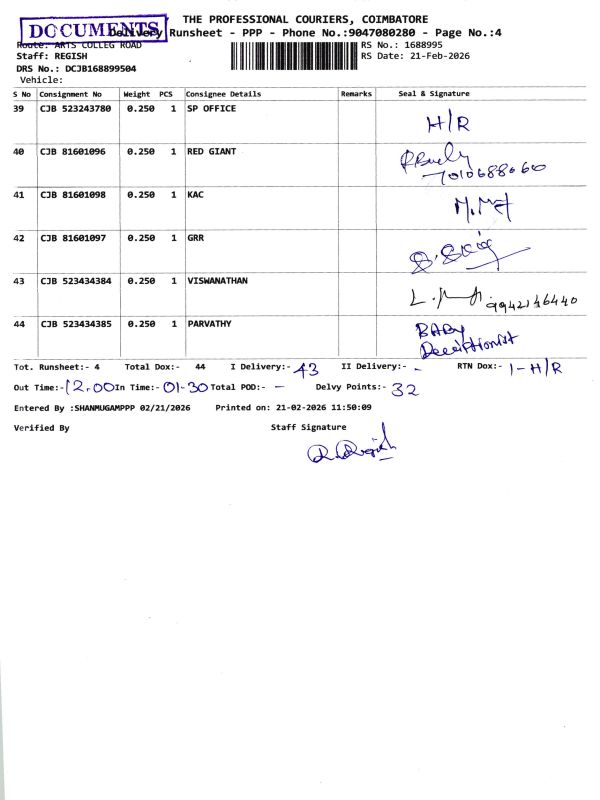 THE PROFESSIONAL COURIERS, COIMBATORE
DOCUMENTS
Delivery Runsheet - PPP - Phone No.:9047080280 - Page No.:4
Route: ARTS COLLEG ROAD
RS No.: 1688995
Staff: REGISH
RS Date: 21-Feb-2026
DRS No.: DCJB168899504
Vehicle:
S No Consignment No Weight PCS Consignee Details Remarks Seal & Signature
39 CJB 523243780 0.250 1 SP OFFICE H/R
40 CJB 81601096 0.250 1 RED GIANT
7010688060
41 CJB 81601098 0.250 1 KAC
42 CJB 81601097 0.250 1 GRR
43 CJB 523434384 0.250 1 VISWANATHAN
44 CJB 523434385 0.250 1 PARVATHY BABY
Tot. Runsheet:- 4 Total Dox:- 44 I Delivery:- 43 II Delivery:- - RTN Dox:- 1-H/R
Out Time:- 12.00 In Time:- 01-30 Total POD:- - Delvy Points:- 32
Entered By :SHANMUGAMPPP 02/21/2026 Printed on: 21-02-2026 11:50:09
Verified By Staff Signature